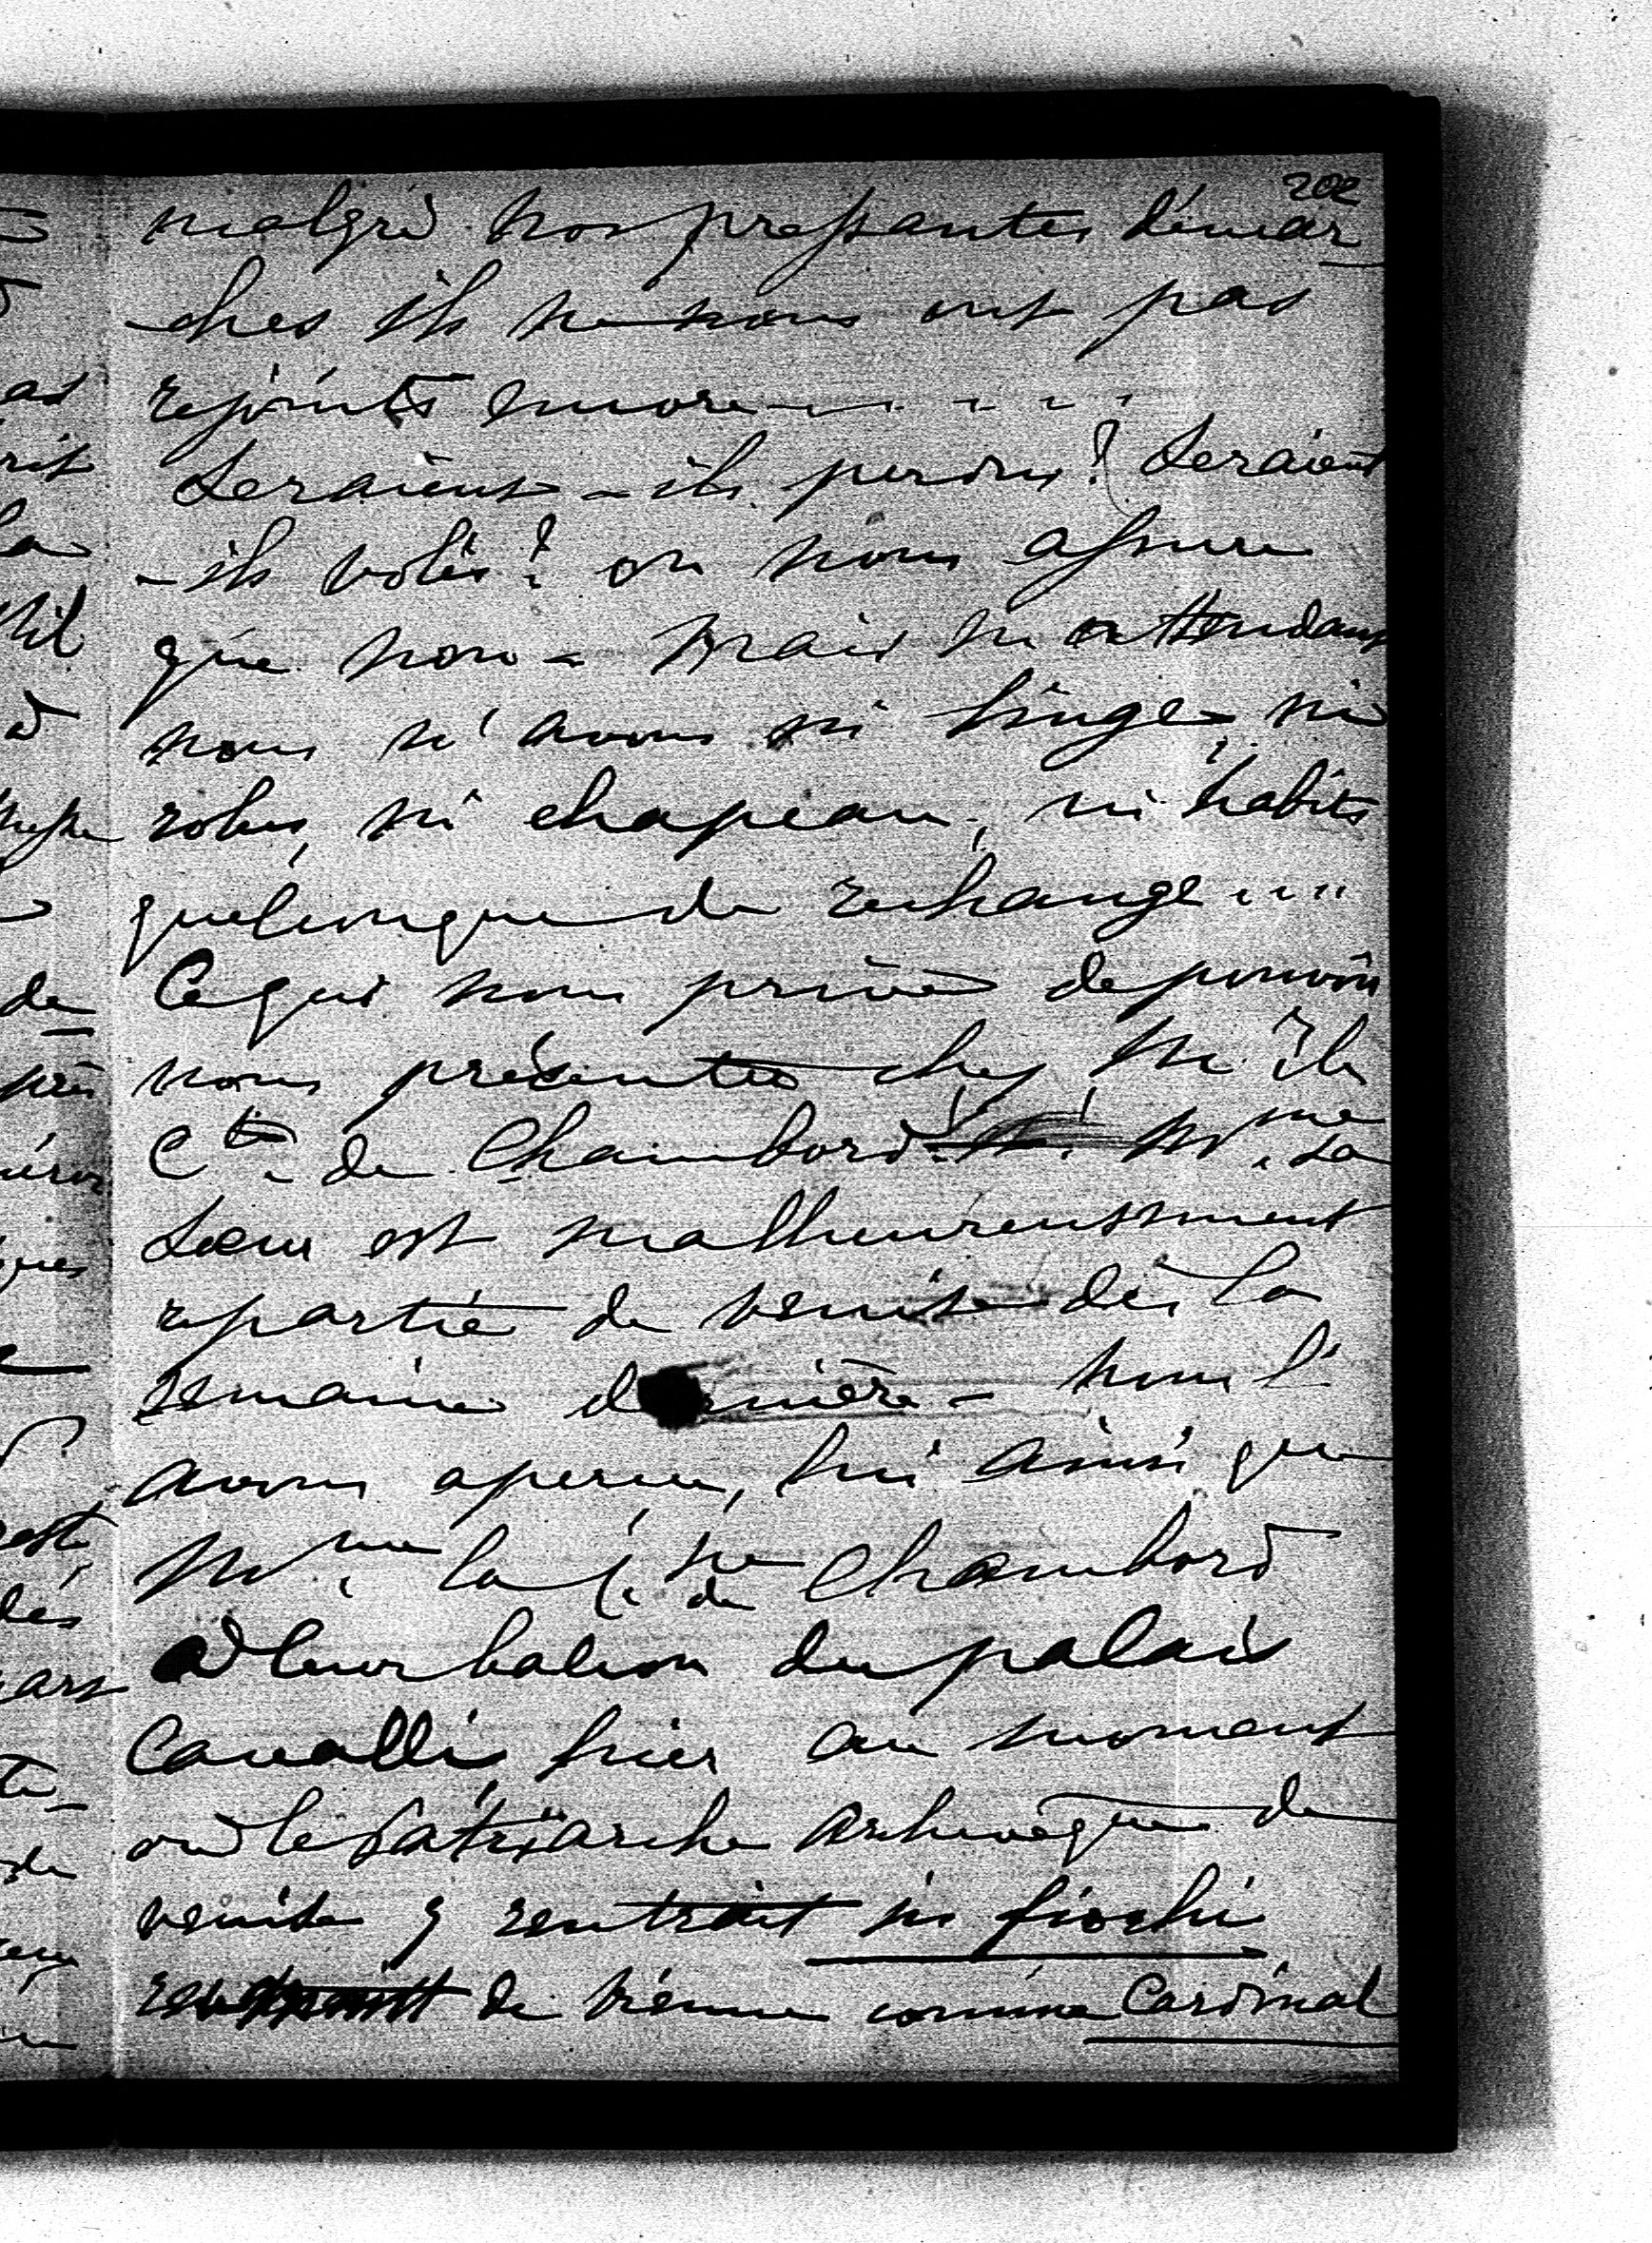 202
malgré nos pressantes démar
-ches ils ne nous ont pas
rejoints encore - . . . . .
Seraient-ils perdus? Seraient
-ils volés? on nous assure
que non - Mais en attendant
nous n'avons ni linge, ni
robes, ni chapeau, ni habits
quelconque de rechange ....
Ce qui nous prive de pouvoir
nous présenter chez Mr le
Cte de Chambord!! Mme sa
Soeur est malheureusement
repartie de Venise dès la
semaine dernière - nous l'
avons aperçu, lui ainsi que
Mme la Csse de Chambord
à leur balcon du palais
Cavalli, hier au moment
où le Patriarche archevêque de
Venise y rentrait in fiochi
de Vienne comme Cardinal